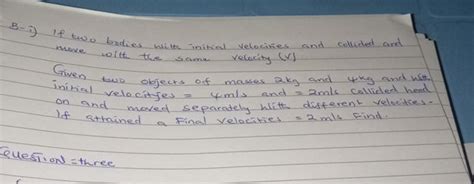 B-i) If two bodies with initial velocities and collided and
move with the same velocity (V)
Given two objects of masses 2kg and 4kg and with
initial velocities = 4m/s and = 2m/s collided head
on and moved separately with different velocities.
If attained a Final velocities = 2m/s Find.
QUESTION = three